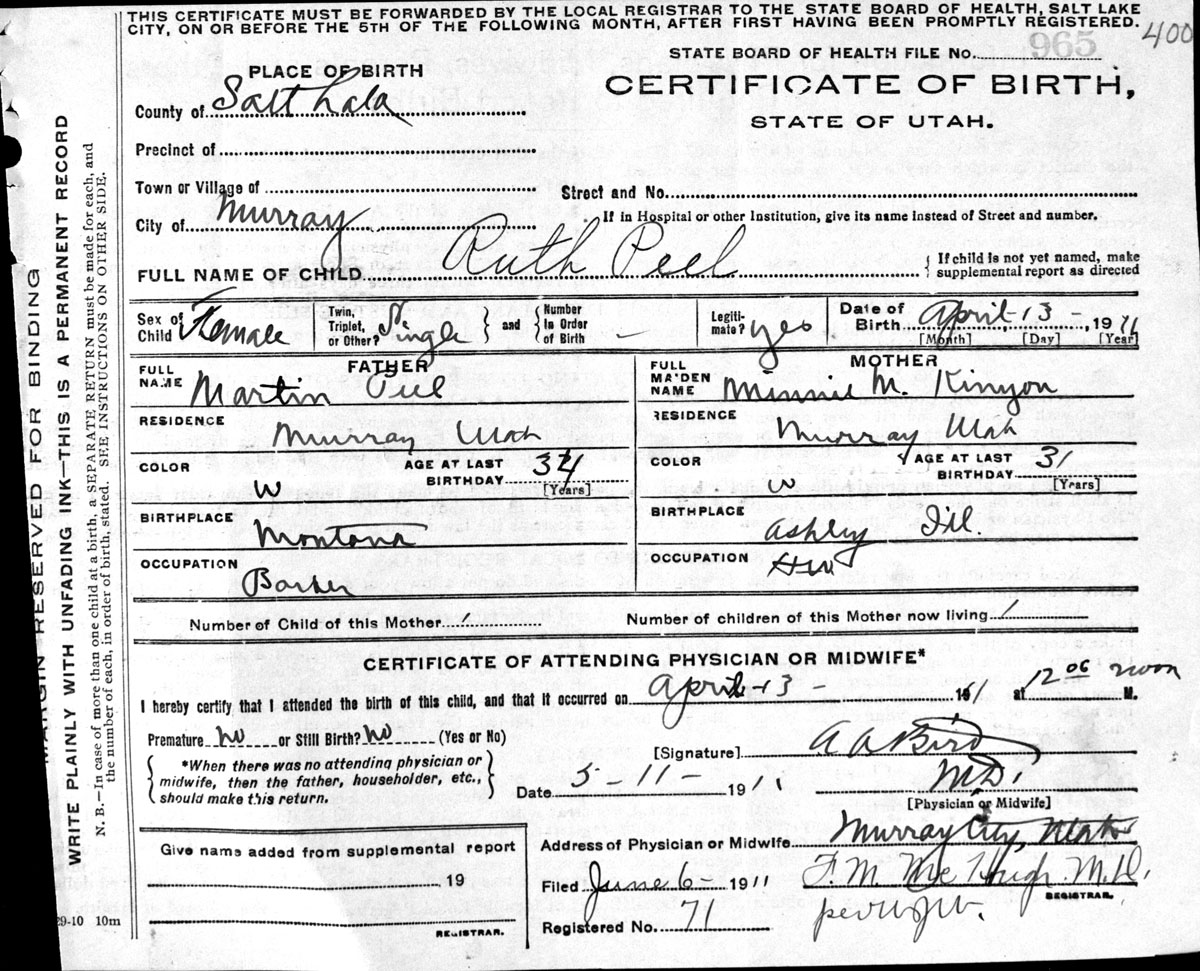 THIS CERTIFICATE MUST BE FORWARDED BY THE LOCAL REGISTRAR TO THE STATE BOARD OF HEALTH, SALT LAKE
CITY, ON OR BEFORE THE 5TH OF THE FOLLOWING MONTH, AFTER FIRST HAVING BEEN PROMPTLY REGISTERED.
400
STATE BOARD OF HEALTH FILE No. 965
CERTIFICATE OF BIRTH,
STATE OF UTAH.
PLACE OF BIRTH
County of Salt Lake
Precinct of
Town or Village of
Street and No.
City of Murray
If in Hospital or other Institution, give its name instead of Street and number.
FULL NAME OF CHILD Ruth Peel
{ If child is not yet named, make
supplemental report as directed
Sex of Child Female
Twin, Triplet, or Other? Single } and { Number in Order of Birth –
Legiti- mate? yes
Date of Birth April-13-1911
[Month] [Day] [Year]
FATHER
FULL NAME Martin Peel
RESIDENCE Murray Utah
COLOR W
AGE AT LAST BIRTHDAY 34 [Years]
BIRTHPLACE Montana
OCCUPATION Barber
MOTHER
FULL MAIDEN NAME Minnie M. Kinyon
RESIDENCE Murray Utah
COLOR W
AGE AT LAST BIRTHDAY 31 [Years]
BIRTHPLACE Ashley Ill.
OCCUPATION HW
Number of Child of this Mother 1
Number of children of this Mother now living 1
CERTIFICATE OF ATTENDING PHYSICIAN OR MIDWIFE*
I hereby certify that I attended the birth of this child, and that it occurred on April-13- 1911 at 12 06 noon M.
Premature no or Still Birth? no (Yes or No)
{ *When there was no attending physician or
midwife, then the father, householder, etc.,
should make this return. }
[Signature] A A Bird
M.D.
[Physician or Midwife]
Date 5-11-1911
Address of Physician or Midwife Murray City, Utah
Give name added from supplemental report
, 19
REGISTRAR.
Filed June 6-1911
F. M. McHugh M.D.
REGISTRAR.
Registered No. 71
29-10 10m
MARGIN RESERVED FOR BINDING
WRITE PLAINLY WITH UNFADING INK—THIS IS A PERMANENT RECORD
N. B.—In case of more than one child at a birth, a SEPARATE RETURN must be made for each, and
the number of each, in order of birth, stated. SEE INSTRUCTIONS ON OTHER SIDE.